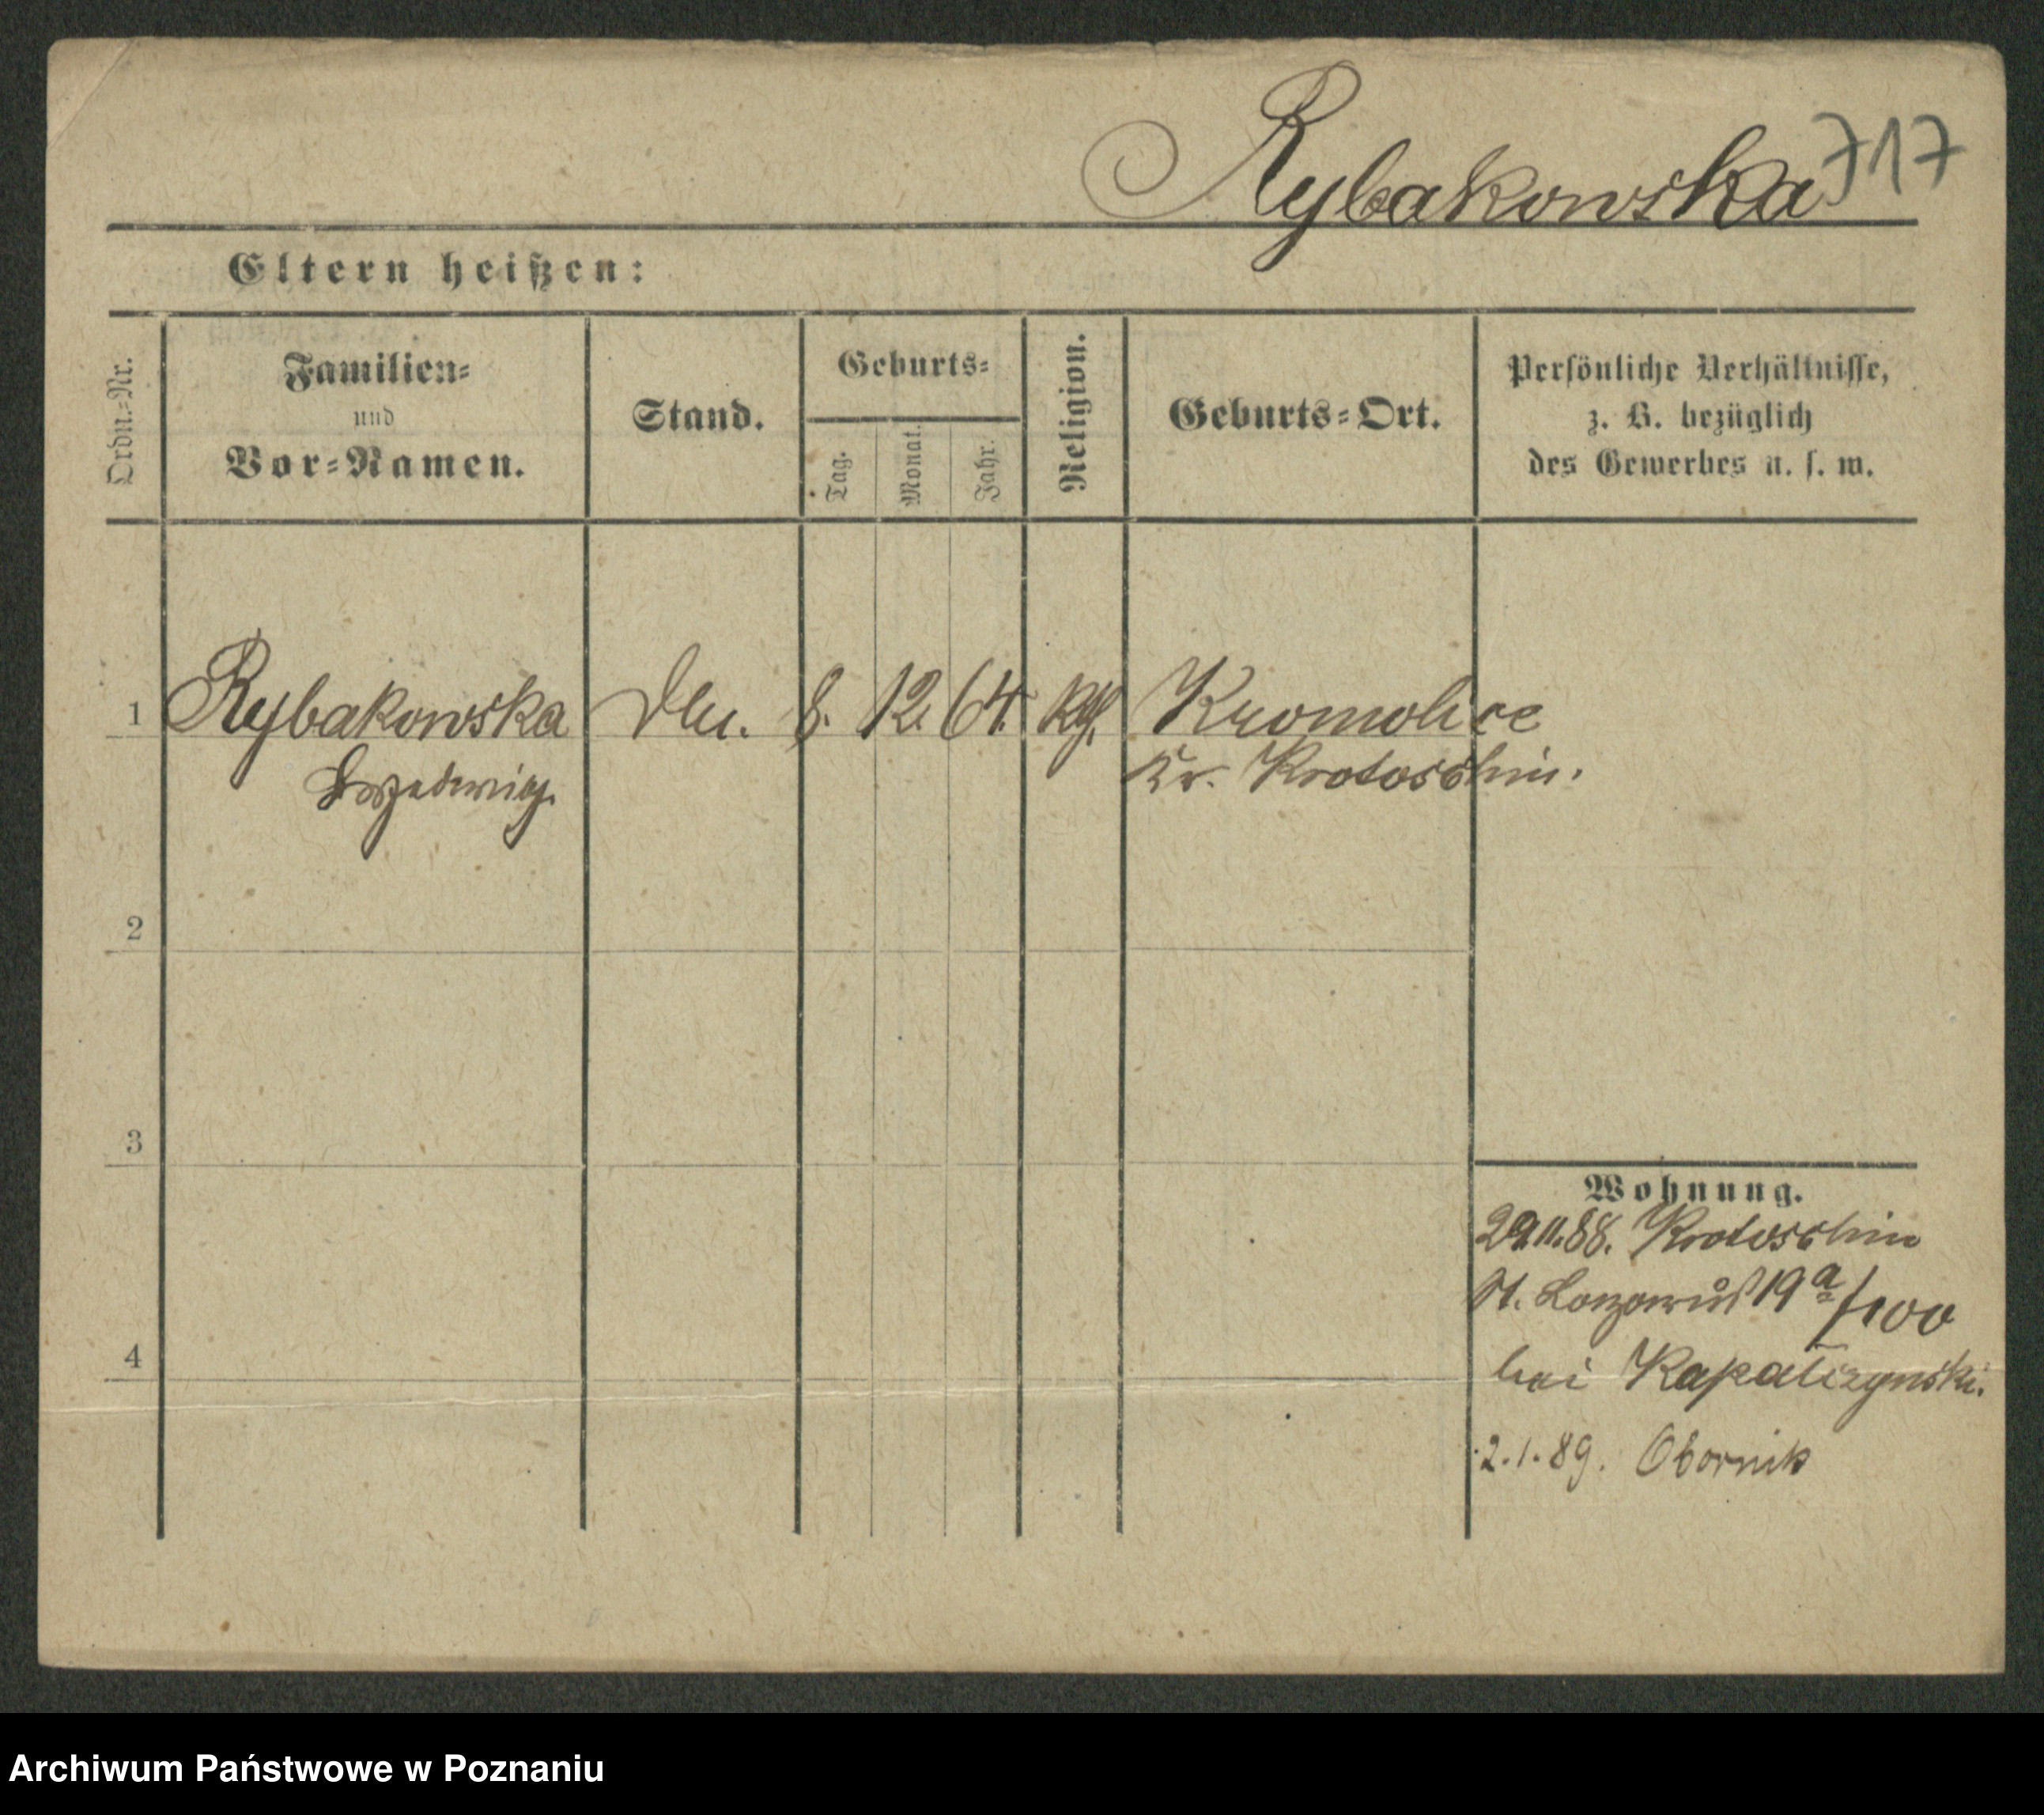 Rybakowska
717
Eltern heißen:
Ordn.=Nr.
Familien=
und
Vor=Namen.
Stand.
Geburts=
Tag.
Monat.
Jahr.
Religion.
Geburts=Ort.
Persönliche Verhältnisse,
z. B. bezüglich
des Gewerbes u. s. w.
1 Rybakowska 8. 12. 64. Kromolice
Hedwig. Kr. Krotoschin.
2
3
Wohnung.
29.11.88. Krotoschin
St. Lazarus 19a/100
4
bei
2.1.89. Obornik
Archiwum Państwowe w Poznaniu